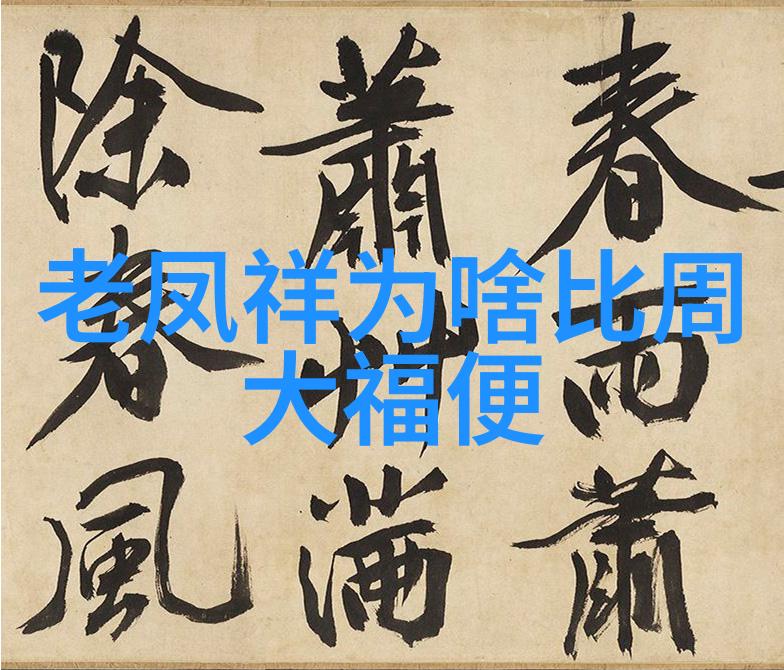 老凤祥为啥比周
大福便
春雨蕭
蕭艸滿
除春風